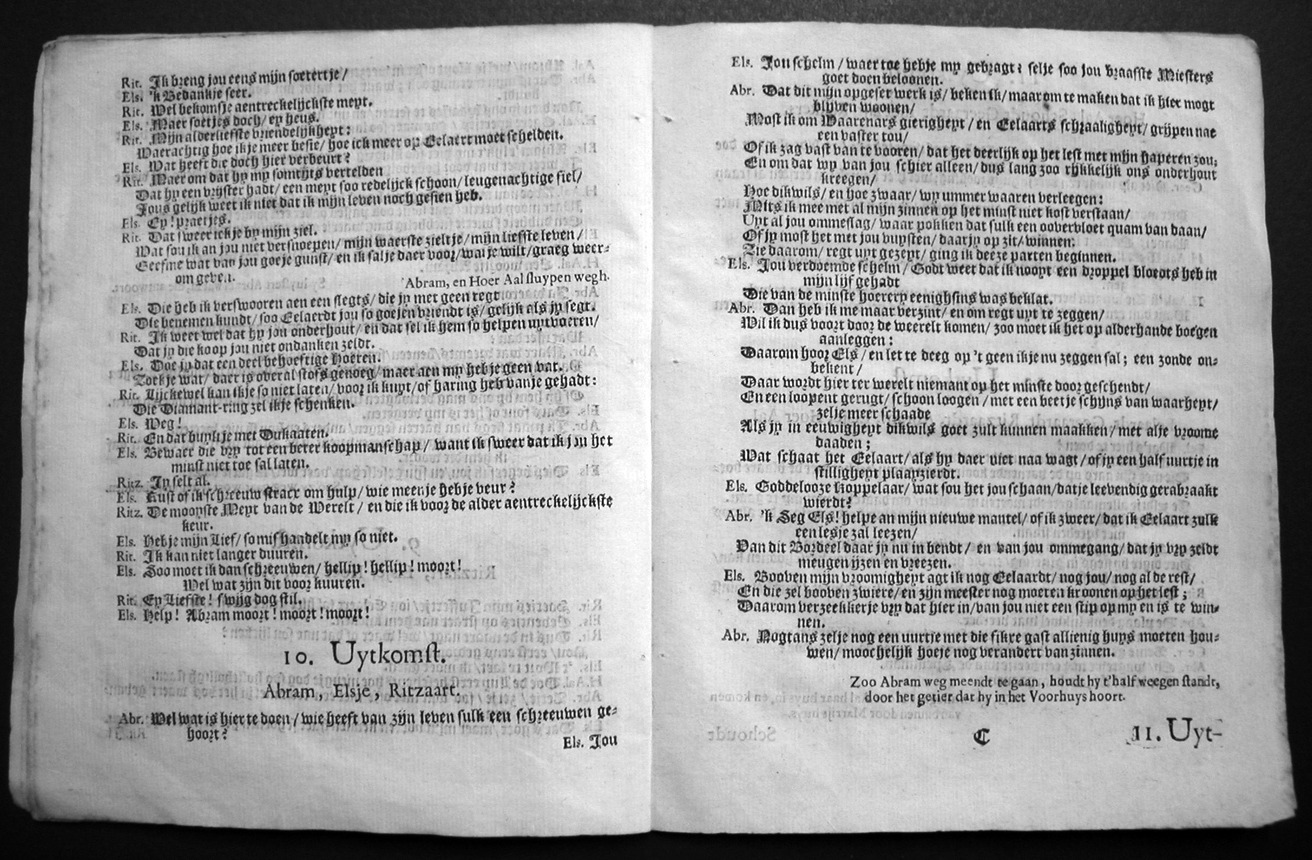 Rit. Ik breng jou eens mijn soetertje/
Els. 'k Bedankje seer.
Rit. Wel bekomsje aentreckelijckste meyt.
Els. Maer soetjes doch/ ey heus.
Rit. Mijn alderliefste vriendelijkheyt:
Waerachtig hoe ikje meer besie/ hoe ick meer op Eelaert moet schelden.
Els. Wat heeft die doch hier verbeurt?
Rit. Maer om dat hy my somtyts vertelden
Dat hy een vryster hadt/ een meyt soo redelijck schoon/ leugenachtige siel/
Jous gelijk weet ik niet dat ik mijn leven noch gesien heb.
Els. Ey! praetjes.
Rit. Dat sweer ick je by mijn ziel.
Wat sou ik an jou niet versnoepen/ mijn waerste zieltje/ mijn liefste leven/
Geefme wat van jou goeje gunst/ en ik sal je daer voor/ wat je wilt/ graeg weer-
om geven.
Abram, en Hoer Aal sluypen wegh.
Els. Die heb ik verswooren aen een slegts/ die jy met geen regt
Die benemen kundt/ soo Eelaerdt jou so goejen vriendt is/ gelijk als jy segt.
Rit. Ik weet wel dat hy jou onderhout/ en dat sel ik hem so helpen uytvoeren/
Dat jy die koop jou niet ondanken zeldt.
Els. Doe jy dat een deel behoeftige Hoeren.
Zoek je wat/ daer is over al stofs genoeg/ maer aen my heb je geen vat.
Rit. Lijckewel kan ikje so niet laten/ voor ik kuyt/ of haring heb van je gehadt:
Die Diamant-ring zel ikje schenken.
Els. Weg!
Rit. En dat buyltje met Dukaaten.
Els. Bewaer die vry tot een beter koopmanschap/ want ik sweer dat ik jou het
minst niet toe sal laten.
Ritz. Jy selt al.
Els. Rust of ik schreeuw strack om hulp/ wie meen je heb je veur?
Ritz. De mooyste Meyt van de Werelt/ en die ik voor de alder aentreckelijckste
keur.
Els. Heb je mijn Lief/ so mishandelt my so niet.
Rit. Ik kan niet langer duuren.
Els. Soo moet ik dan schreeuwen/ hellip! hellip! moort!
Wel wat zijn dit voor kuuren.
Rit. Ey Liefste! swijg dog stil.
Els. Help! Abram moort! moort! moort!
10. Uytkomst.
Abram, Elsje, Ritzaart.
Abr. Wel wat is hier te doen/ wie heeft van zijn leven sulk een schreeuwen ge-
hoort?
Els. Jou
Els. Jou schelm/ waer toe hebje my gebragt? selje soo jou braafste Miesters
goet doen beloonen.
Abr. Dat dit mijn opgeset werk is/ beken ik/ maar om te maken dat ik hier mogt
blijven woonen/
Most ik om Waarenars gierigheyt/ en Eelaarts schraaligheyt/ grijpen nae
een vaster tou/
Of ik zag vast van te vooren/ dat het deerlijk op het lest met mijn haperen zou;
En om dat wy van jou schier alleen/ dus lang zoo rijkkelijk ons onderhout
kreegen/
Hoe dikwils/ en hoe zwaar/ wy ummer waaren verleegen:
Mits ik mee met al mijn zinnen op het minst niet kost verstaan/
Uyt al jou ommeslag/ waar pokken dat sulk een oovervloet quam van daan/
Of jy most het met jou buysten/ daar jy op zit/ winnen:
Zie daarom/ regt uyt gezeyt/ ging ik deeze parten beginnen.
Els. Jou verdoemde schelm/ Godt weet dat ik nooyt een droppel bloets heb in
mijn lijf gehadt
Die van de minste hoerery eenighsins was beklat.
Abr. Dan heb ik me maar verzint/ en om regt uyt te zeggen/
Wil ik dus voort door de weerelt komen/ zoo moet ik het op alderhande boegen
aanleggen:
Daarom hoor Els/ en let te deeg op 't geen ikje nu zeggen sal; een zonde on-
bekent/
Daar wordt hier ter werelt niemant op het minste door geschendt/
En een loopent gerugt/ schoon loogen/ met een beetje schijns van waarheyt/
zelje meer schaade
Als jy in eeuwigheyt dikwils goet zult kunnen maakken/ met alje vroome
daaden;
Wat schaat het Eelaart/ als hy daer niet naa vragt/ of jy een half uurtje in
stilligheyt plaayzierdt.
Els. Goddelooze koppelaar/ wat sou het jou schaan/ datje leevendig gerabraakt
wierdt?
Abr. 'k Seg Els! helpe an mijn nieuwe mantel/ of ik zweer/ dat ik Eelaart zulk
een lesje zal leezen/
Van dit Bordeel daar jy nu in bendt/ en van jou ommegang/ dat jy vry zeldt
meugen yzen en vreezen.
Els. Booven mijn vroomigheyt agt ik nog Eelaardt/ nog jou/ nog al de rest/
En die zel booven zwiere/ en zijn meester nog moeten kroonen op het lest;
Daarom verzeekkerje vry dat hier in/ van jou niet een stip op my en is te win-
nen.
Abr. Nogtans zelje nog een uurtje met die sikre gast allienig huys moeten hou-
wen/ moochelijk hoeje nog verandert van zinnen.
Zoo Abram weg meendt te gaan, houdt hy t'half weegen standt,
door het getier dat hy in het Voorhuys hoort.
C
11. Uyt-